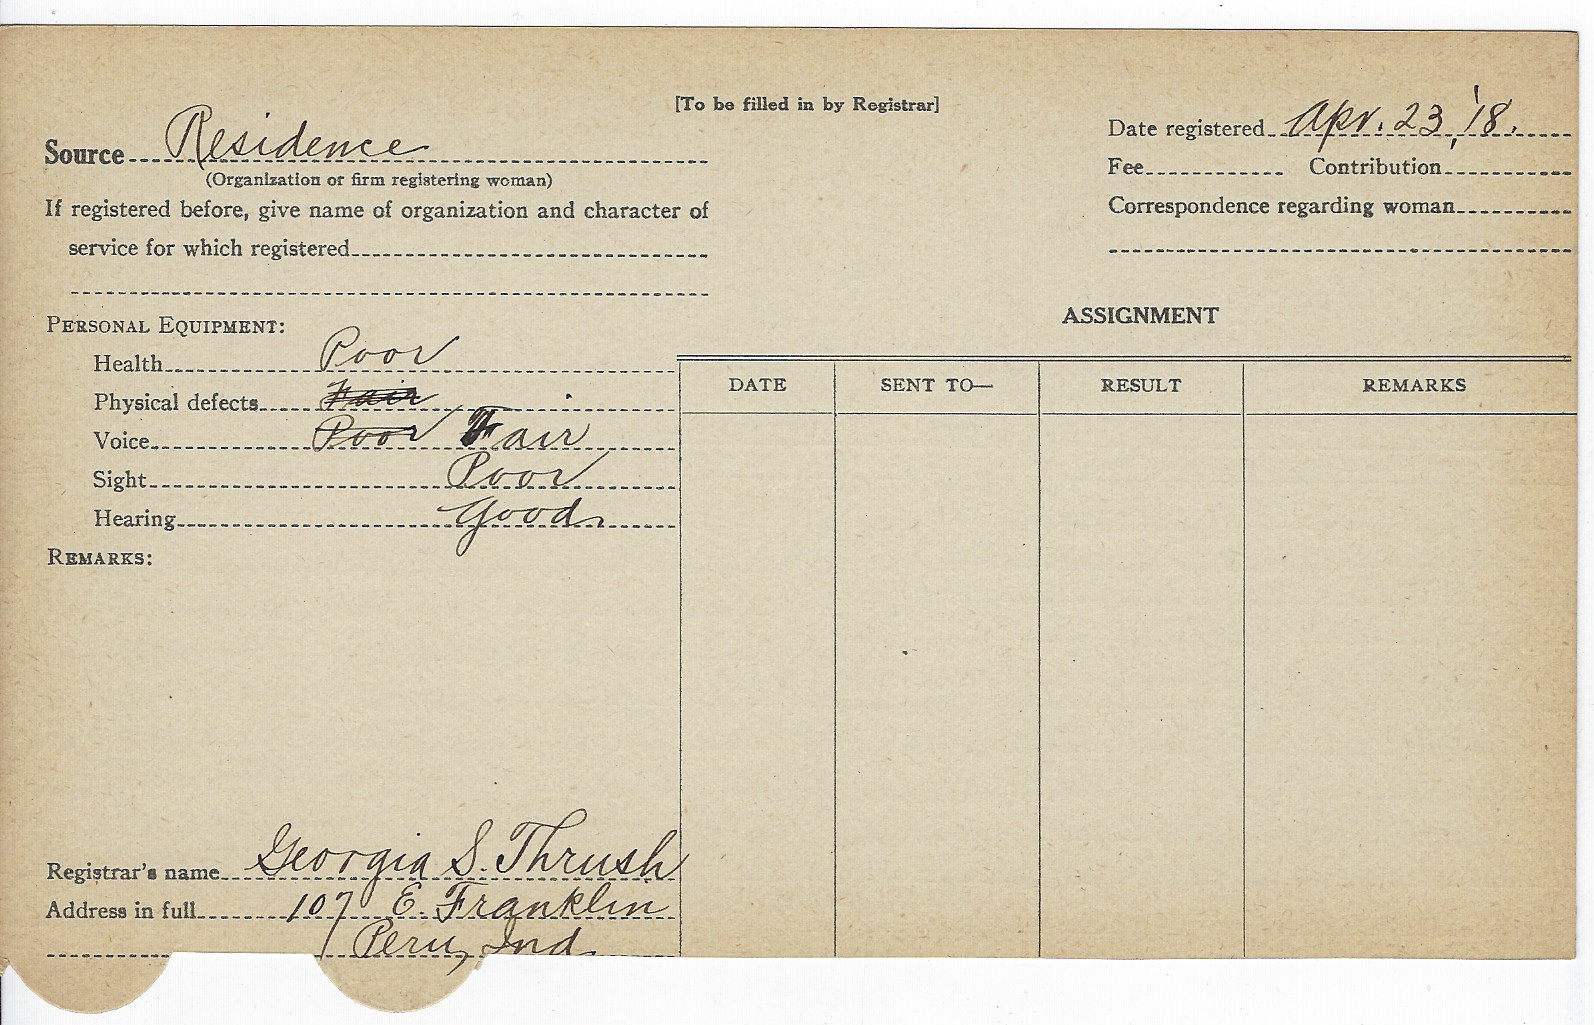 [To be filled in by Registrar]
Source Residence
(Organization or firm registering woman)
If registered before, give name of organization and character of
service for which registered
Date registered Apr. 23, '18.
Fee Contribution
Correspondence regarding woman
PERSONAL EQUIPMENT:
Health Poor
Physical defects Fair
Voice Poor Fair
Sight Poor
Hearing Good
REMARKS:
Registrar's name Georgia S. Thrush
Address in full 107 E. Franklin
Peru, Ind.
ASSIGNMENT
DATE SENT TO— RESULT REMARKS